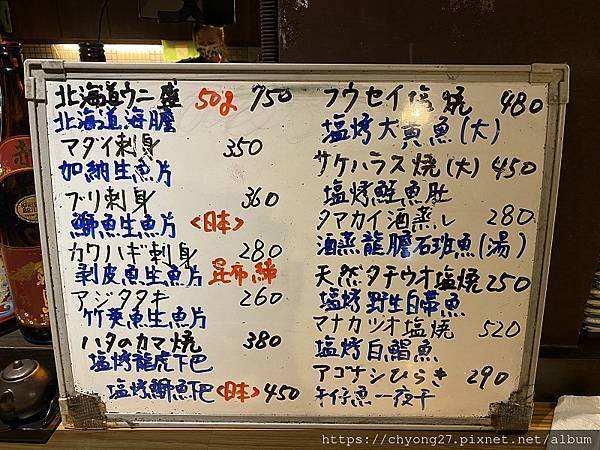 北海道ウニ盛 50g 750
北海道海膽
マダイ刺身 350
加納生魚片
ブリ刺身 360
鰤魚生魚片 <日本>
カワハギ刺身 280
剥皮魚生魚片 昆布締
アジタタキ 260
竹筴魚生魚片
ハタのカマ焼 380
塩烤龍虎下巴
塩烤鰤魚下巴 <日本> 450
フウセイ塩焼 480
塩烤大黄魚(大)
サケハラス焼(大) 450
塩烤鮭魚肚
タマカイ酒蒸し 280
酒蒸龍膽石斑魚(湯)
天然タチウオ塩焼 250
塩烤野生白帶魚
マナカツオ塩焼 520
塩烤白鯧魚
アゴナシひらき 290
午仔魚一夜干
赤
https://chyong27.pixnet.net/album